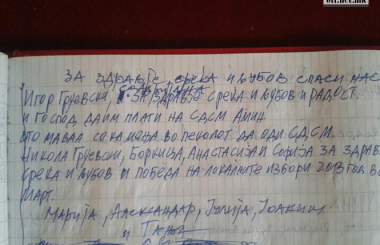 off.net.mk
ЗА ЗДРАВЈЕ, СРЕЌА И ЉУБОВ СПАСИ НАС
Игор Груевски, ЗА ЗДРАВЈЕ СРЕЌА И ЉУБОВ И РАДОСТ.
И ГОСПОД ДА ИМ ПЛАТИ НА СДСМ АМИН.
СО МАВАА СО КАМЕЊА ВО ПЕКОЛОТ ДА ОДИ СДСМ.
НИКОЛА ГРУЕВСКИ, БОРКИЦА, АНАСТАСИЈА И СОФИЈА ЗА ЗДРАВ
СРЕЌА И ЉУБОВ И ПОБЕДА НА ЛОКАЛНИТЕ ИЗБОРИ 2013 ГОД ВО
МАРТ.
МАРИЈА, АЛЕКСАНДАР, ЈОАКИМ
И ТАЊА